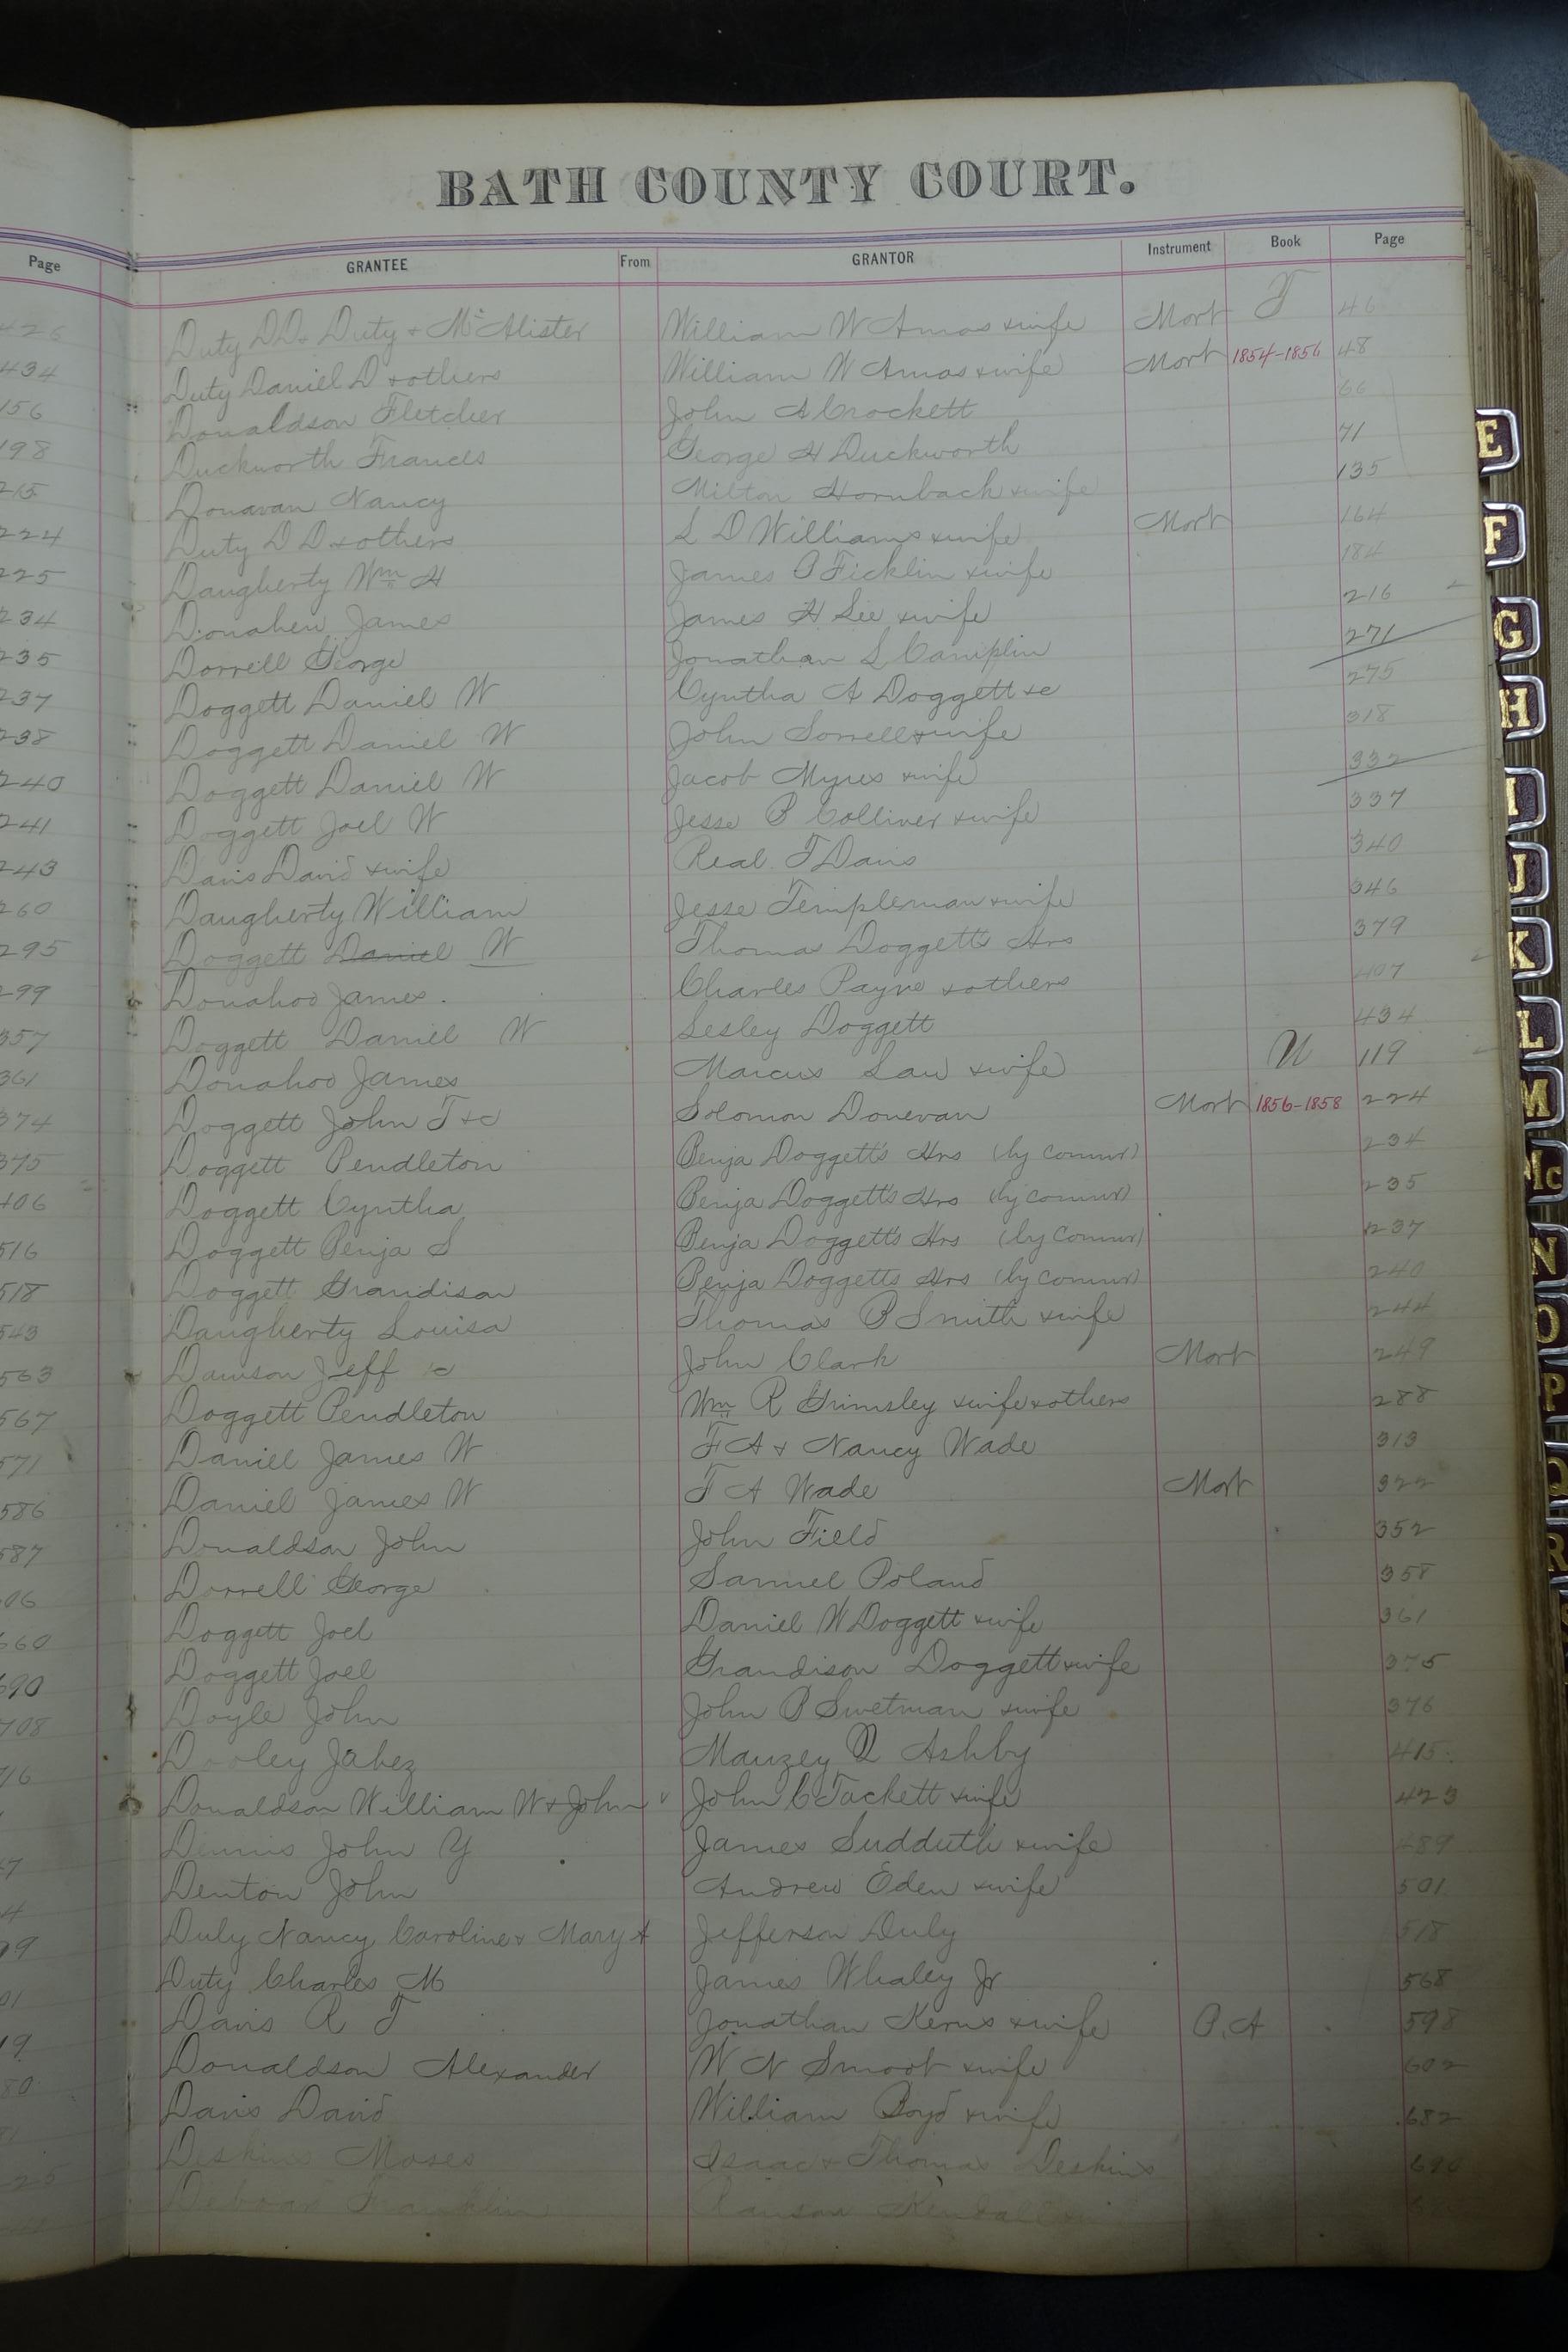 BATH COUNTY COURT.
Page GRANTEE From GRANTOR Instrument Book Page
Duty D D & Duty & McAlister William W Amos & wife Mort T 46
Duty Daniel D & others William W Amos & wife Mort 1854-1856 48
Donaldson Fletcher John A Crockett 66
Duckworth Frances George H Duckworth 71
Donavan Nancy Milton Hornback & wife 135
Duty D D & others L D Williams & wife Mort 164
Daugherty Wm H James B Ficklin & wife 184
Donahew James James H Lee & wife 216
Dorrell George Jonathan L Camplin 271
Doggett Daniel W Cyntha A Doggett &c 275
Doggett Daniel W John Sorrell & wife 318
Doggett Daniel W Jacob Myres & wife 332
Doggett Joel W Jesse B Colliver & wife 337
Davis David & wife Real T Davis 340
Daugherty William Jesse Templeman & wife 346
Doggett Daniel W Thomas Doggett's Hrs 379
Donahoo James Charles Payne & others 407
Doggett Daniel W Lesley Doggett 434
Donahoo James Marcus Law & wife U 119
Doggett John T &c Solomon Donevan Mort 1856-1858 224
Doggett Pendleton Benja Doggett's Hrs (by commr) 234
Doggett Cyntha Benja Doggett's Hrs (by commr) 235
Doggett Benja S Benja Doggett's Hrs (by commr) 237
Doggett Grandison Benja Doggett's Hrs (by commr) 240
Daugherty Louisa Thomas B Smith & wife 244
Dawson Jeff &c John Clark Mort 249
Doggett Pendleton Wm R Grimsley & wife & others 288
Daniel James W F A & Nancy Wade 313
Daniel James W F A Wade Mort 322
Donaldson John John Field 352
Dorrell George Samuel Poland 358
Doggett Joel Daniel W Doggett & wife 361
Doggett Joel Grandison Doggett & wife 375
Doyle John John B Swetman & wife 376
Dooley Jabez Mauzey Q Ashby 415
Donaldson William W & John John C Tackett & wife 423
Dennis John Y James Sudduth & wife 489
Denton John Andrew Eden & wife 501
Duly Nancy Caroline & Mary A Jefferson Duly 518
Duty Charles M James Whaley Jr 568
Davis R T Jonathan Kerns & wife P.A 598
Donaldson Alexander W N Smoot & wife 602
Davis David William Boyd & wife 682
Deskins Moses Isaac & Thomas Deskins 690
Franklin Kendall
E
F
G
H
I
J
K
L
M
Mc
N
O
P
Q
R